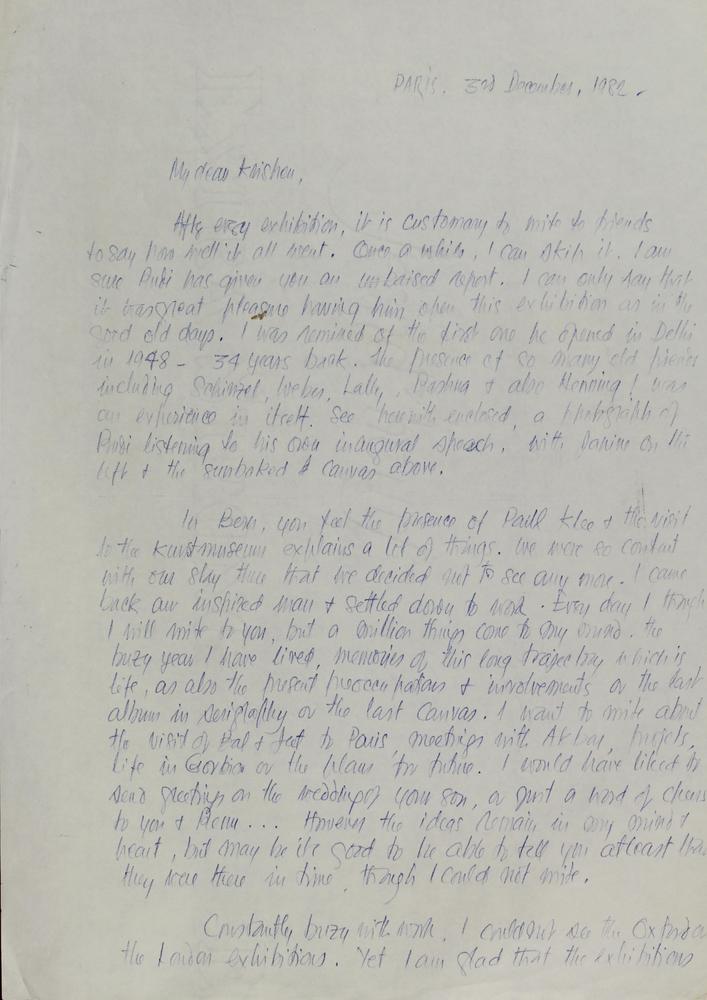 PARIS. 3rd December, 1982.
My dear Krishen,
After every exhibition, it is customary to write to friends
to say how well it all went. Once a while, I can skip it. I am
sure Rubi has given you an unbaised report. I can only say that
it was great pleasure having him open this exhibition as in the
good old days. I was remined of the first one he opened in Delhi
in 1948 - 34 years back. The presence of so many old friends
including Schinzel, Weber, Lally, Rashna & also Henning! was
an experience in itself. See herewith enclosed, a photograph of
Rubi listening to his own inaugural speech, with Janine on the
left & the sunbaked canvas above.
In Bern, you feel the presence of Paul Klee & the visit
to the Kunstmuseum explains a lot of things. We were so content
with our stay there that we decided not to see any more. I came
back an inspired man & settled down to work. Every day I though
I will write to you, but a million things come to my mind. The
buzy year I have lived, memories of this long trajectory which is
life, as also the present preoccupations & involvements or the last
album in serigraphy or the last canvas. I want to write about
the visit of Bal & Jeet to Paris, meetings with Akbar, projets,
life in Gorbio or the plans for future. I would have liked to
send greetings on the wedding of your son, or just a word of cheers
to you & Renu ... However the ideas remain in my mind &
heart, but may be its good to be able to tell you atleast that
they were there in time, though I could not write.
Constantly buzy with work, I couldnt see the Oxford or
the London exhibitions. Yet I am glad that the exhibitions